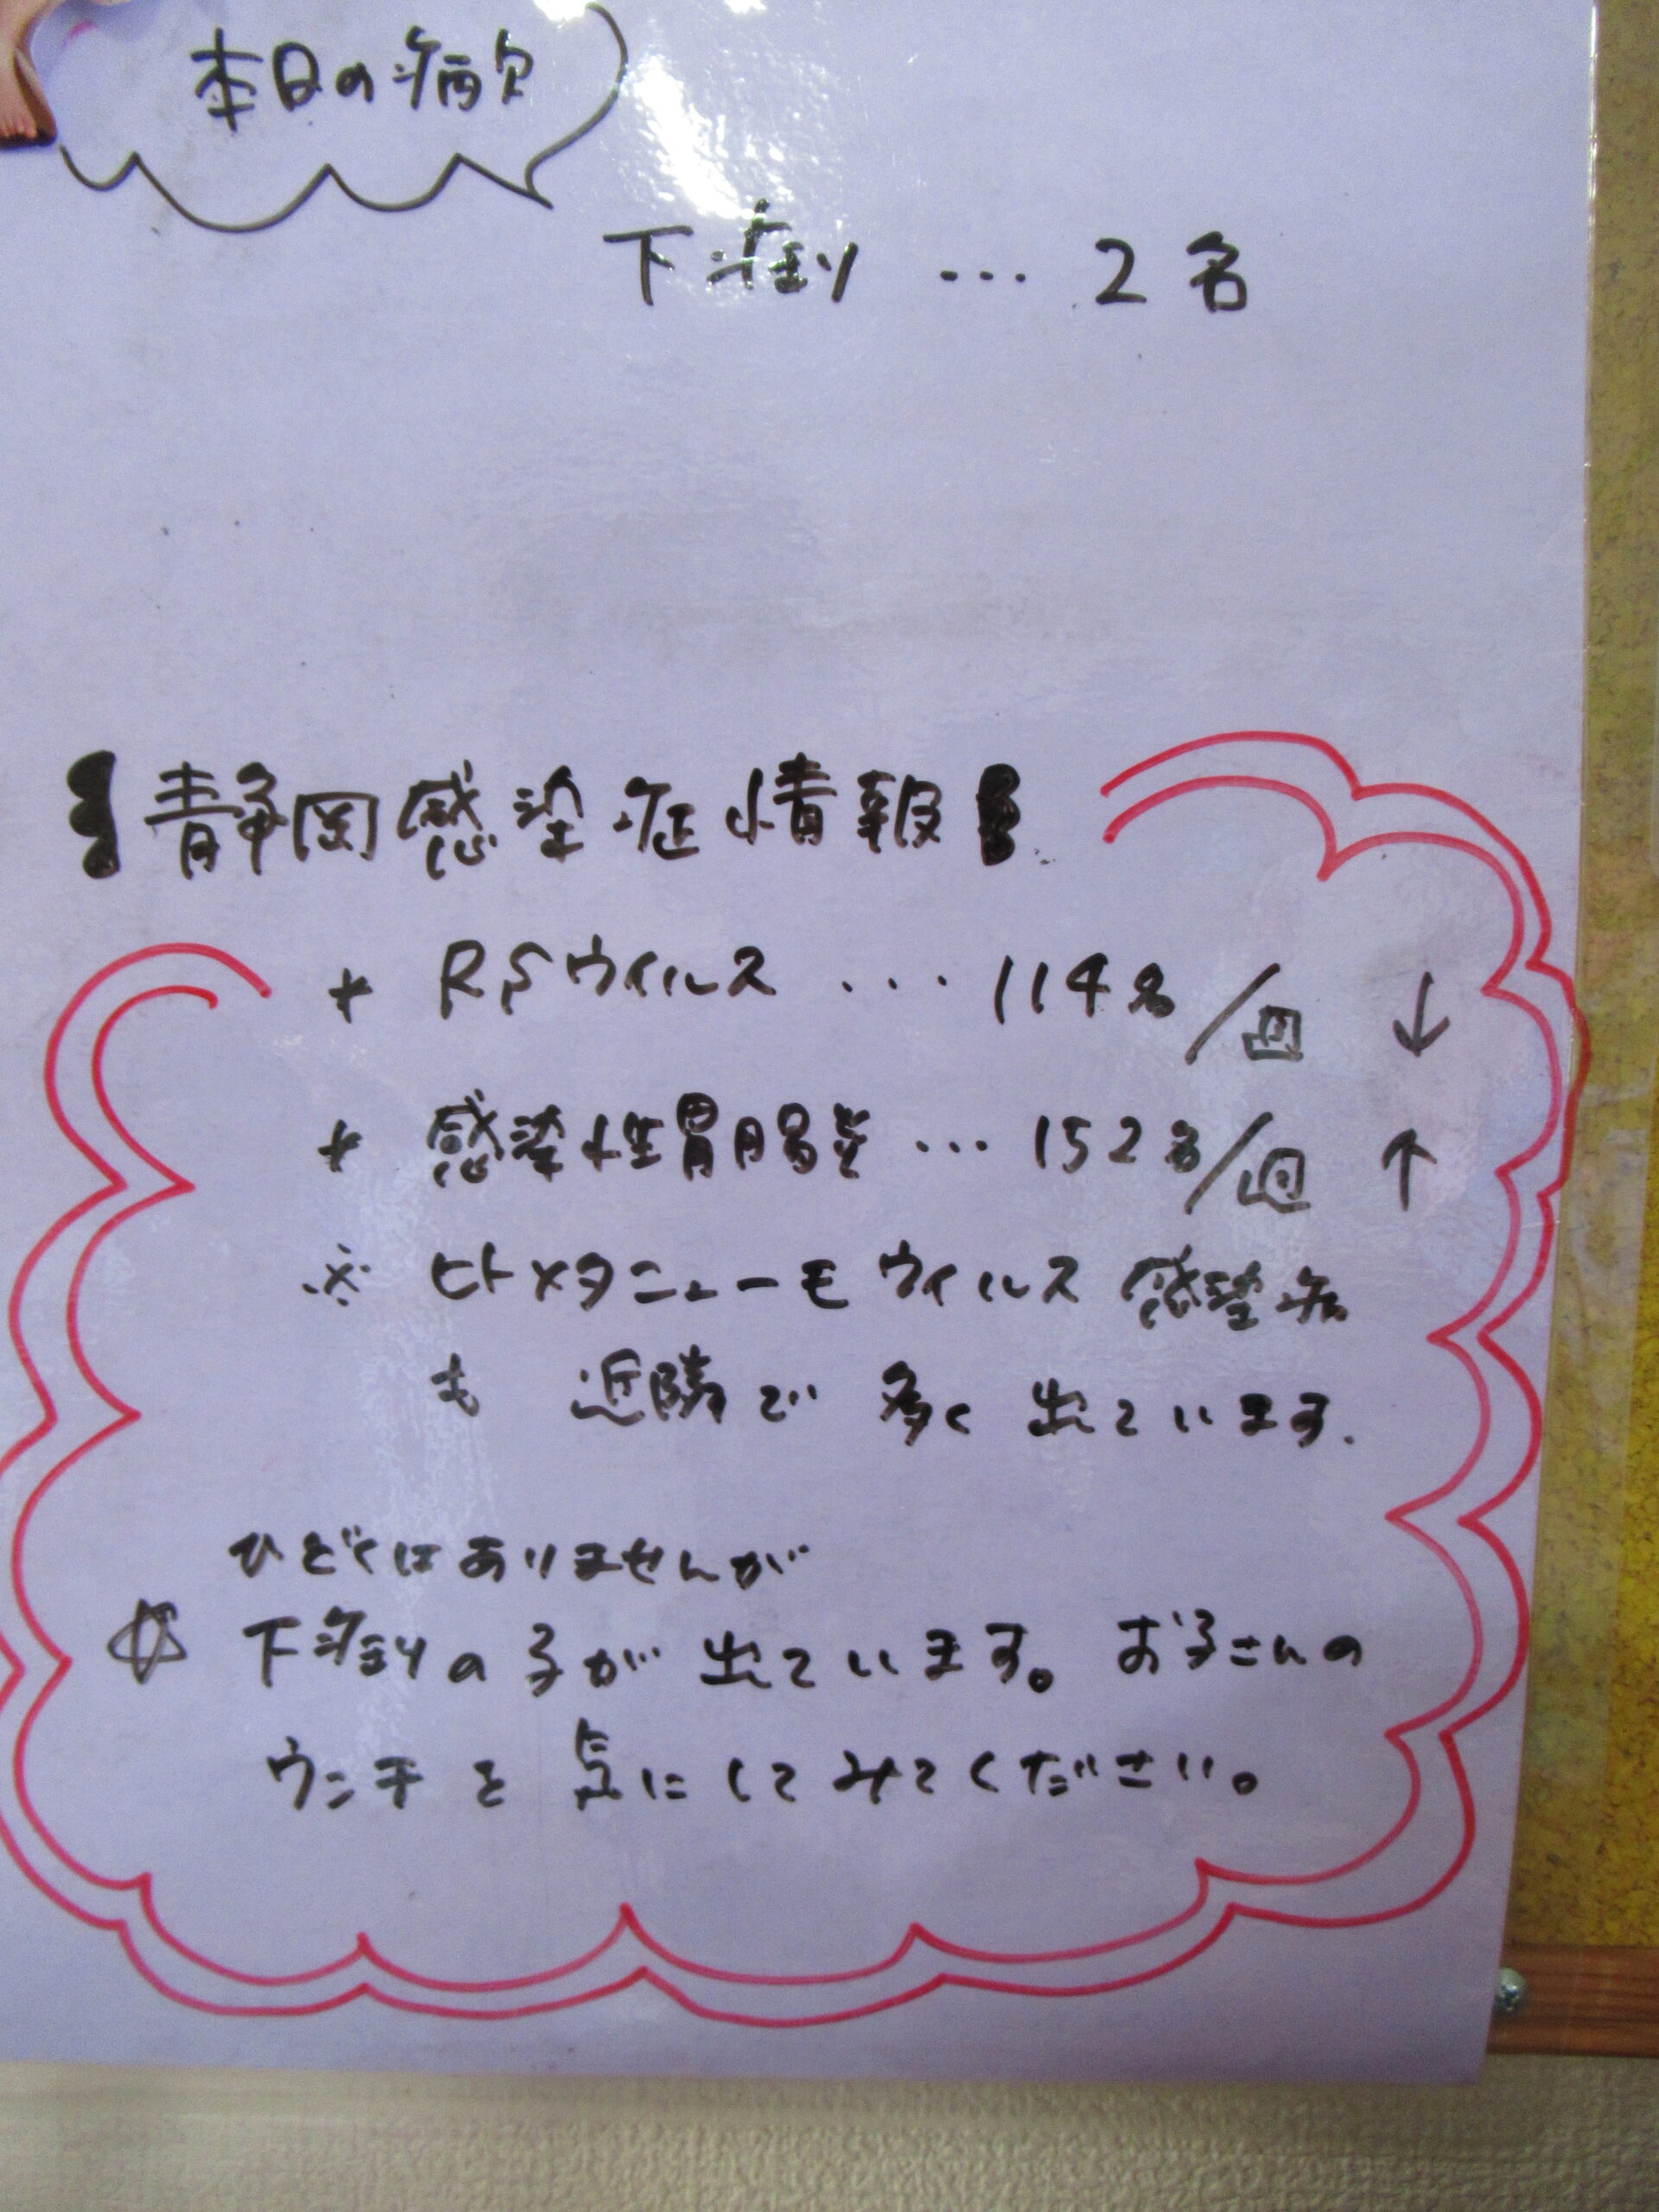 本日の病欠
下痢 … 2名
【静岡感染症情報】
* RSウイルス … 114名/週 ↓
* 感染性胃腸炎 … 152名/週 ↑
※ ヒトメタニューモウィルス感染症
も 近隣で 多く 出ています.
ひどくはありませんが
☆ 下痢の子が 出ています。お子さんの
ウンチを 気にしてみてください。